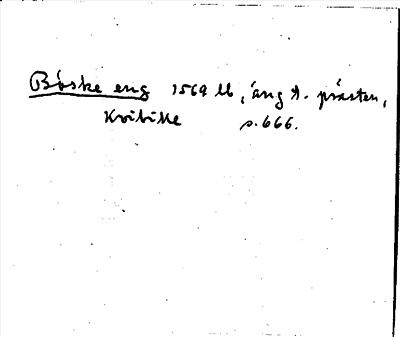 Böske eng 1569 lb, äng t. prästen,
Kvibille s. 666.